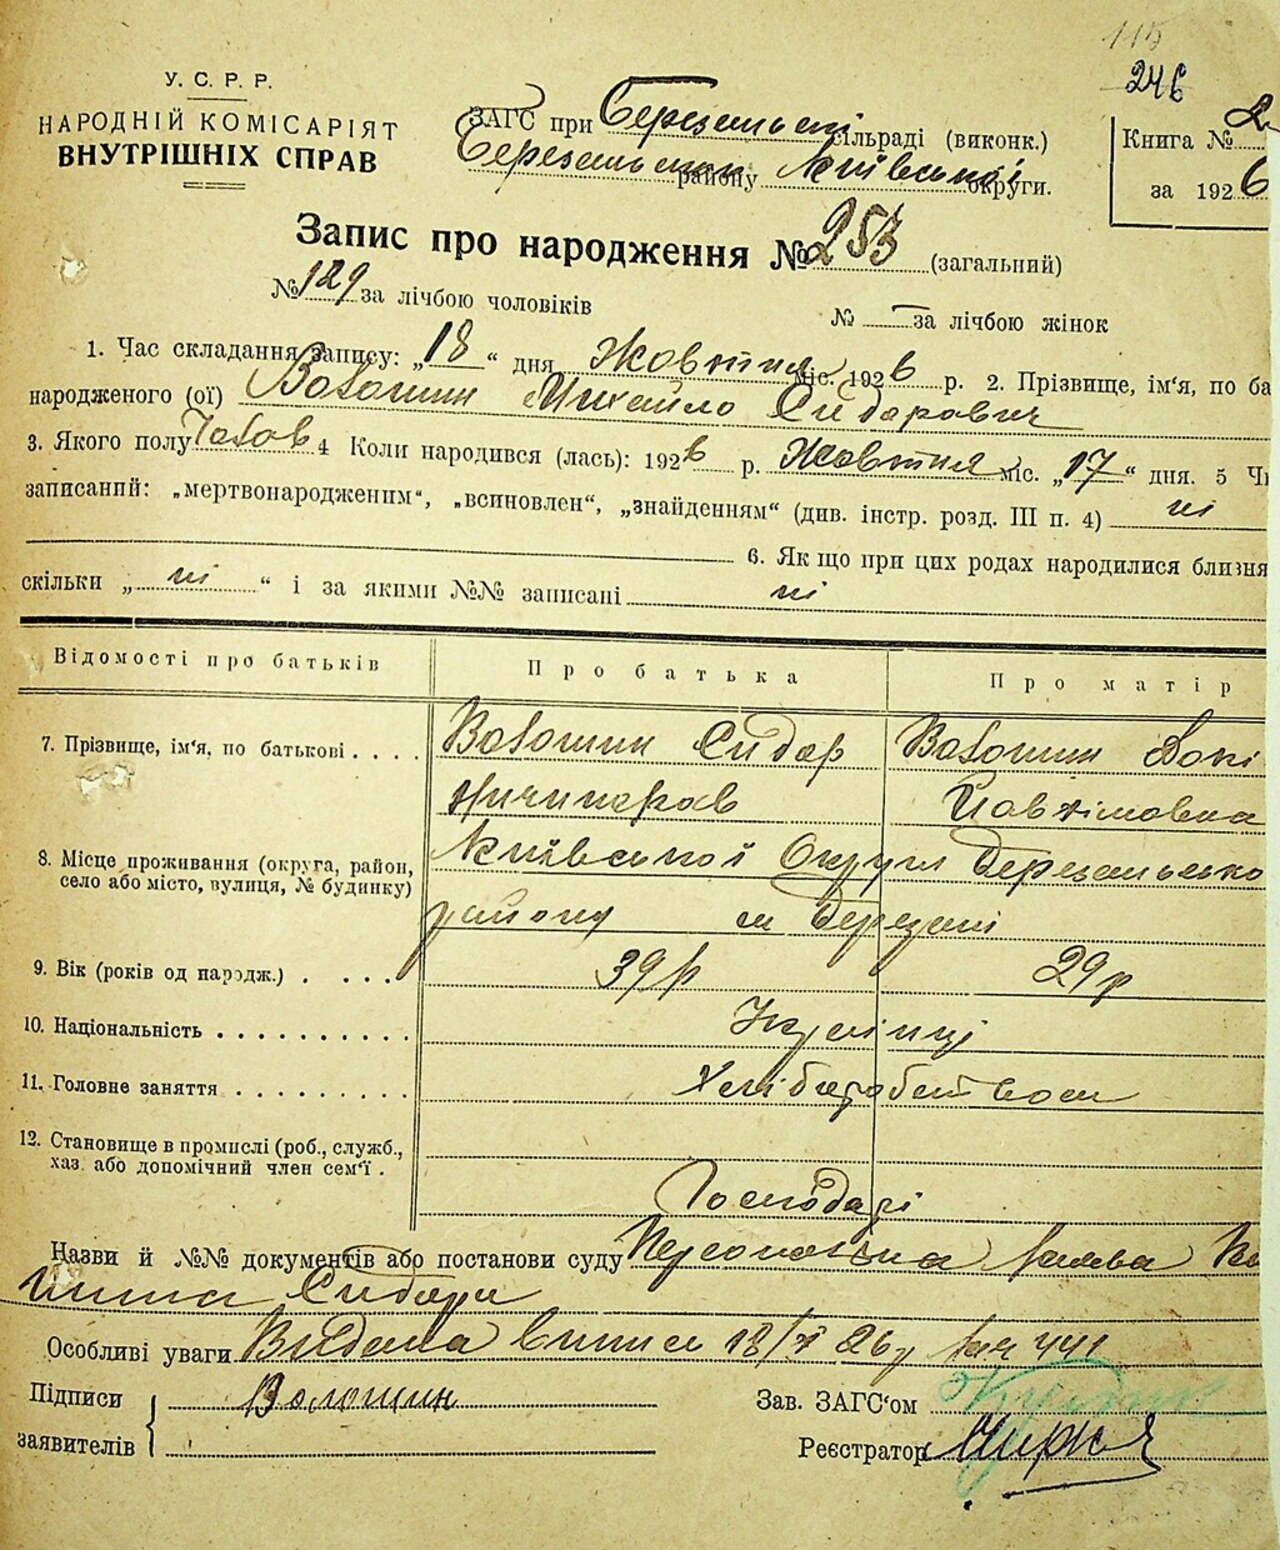 115
246
У. С. Р. Р.
НАРОДНІЙ КОМІСАРІЯТ
ВНУТРІШНІХ СПРАВ
ЗАГС при Березанській сільраді (виконк.)
Березанськ району Київської округи.
Книга № 2
за 1926
Запис про народження № 253 (загальний)
№ 129 за лічбою чоловіків
№ — за лічбою жінок
1. Час складання запису: „18“ дня Жовтня міс. 1926 р. 2. Прізвище, ім‘я, по ба
народженого (ої) Волошин Михайло Сидарович
3. Якого полу Чолов 4 Коли народився (лась): 1926 р. Жовтня міс. „17“ дня. 5 Чи
записаний: „мертвонародженим“, „всиновлен“, „знайденням“ (див. інстр. розд. III п. 4) ні
6. Як що при цих родах народилися близня
скільки „ ні “ і за якими №№ записані ні
Відомості про батьків Про батька Про матір
7. Прізвище, ім‘я, по батькові . . . . Волошин Сидар Волошин Докі
Ничипоров Йовтімовна
8. Місце проживання (округа, район, Київської Округи Березансько
село або місто, вулиця, № будинку) району м Березані
9. Вік (років од народж.) . . . . 39 р 29 р
10. Національність . . . . . . . . . . Українці
11. Головне заняття . . . . . . . . . Хліборобством
12. Становище в промислі (роб., служб.,
хаз. або допомічний член сем‘ї . Господарі
Назви й №№ документів або постанови суду Персональна заява Во
шина Сидара
Особливі уваги Видана випис 18/X 26 р за № 441
Підписи Волошин
заявителів
Зав. ЗАГС‘ом
Реєстратор